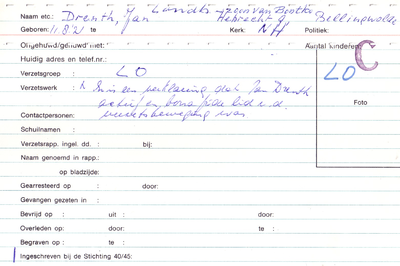 Naam etc.: Drenth, Jan Bellingwolde
Geboren: 11.8.21 te Kerk: NH Politiek:
Ongehuwd/gehuwd met: Aantal kinderen:
Huidig adres en telf.nr.:
Verzetsgroep : LO
LO
C
Verzetswerk : is een verklaring dat Jan Drenth
actief en bona fide lid v.d.
Foto
verzetsbeweging was
Contactpersonen:
Schuilnamen :
Verzetsrapp. ingel. dd. : bij:
Naam genoemd in rapp.:
op bladzijde:
Gearresteerd op : door:
Gevangen gezeten in :
Bevrijd op : uit : door:
Overleden op: door: te :
Begraven op : te :
Ingeschreven bij de Stichting 40/45: